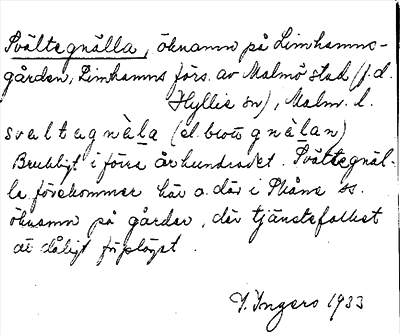 Svältegnälla, öknamn på Limhamns-
gården, Limhamns förs. av Malmö stad (f.d.
Hyllie sn), Malm. l.
sveltagnèla (el. gnèlan)
Brukligt i förra århundradet. Svältegnäl-
la förekommer här o. där i Skåne ss.
öknamn på gårdar, där tjänstefolket
är dåligt förplägat.
I. Ingers 1933